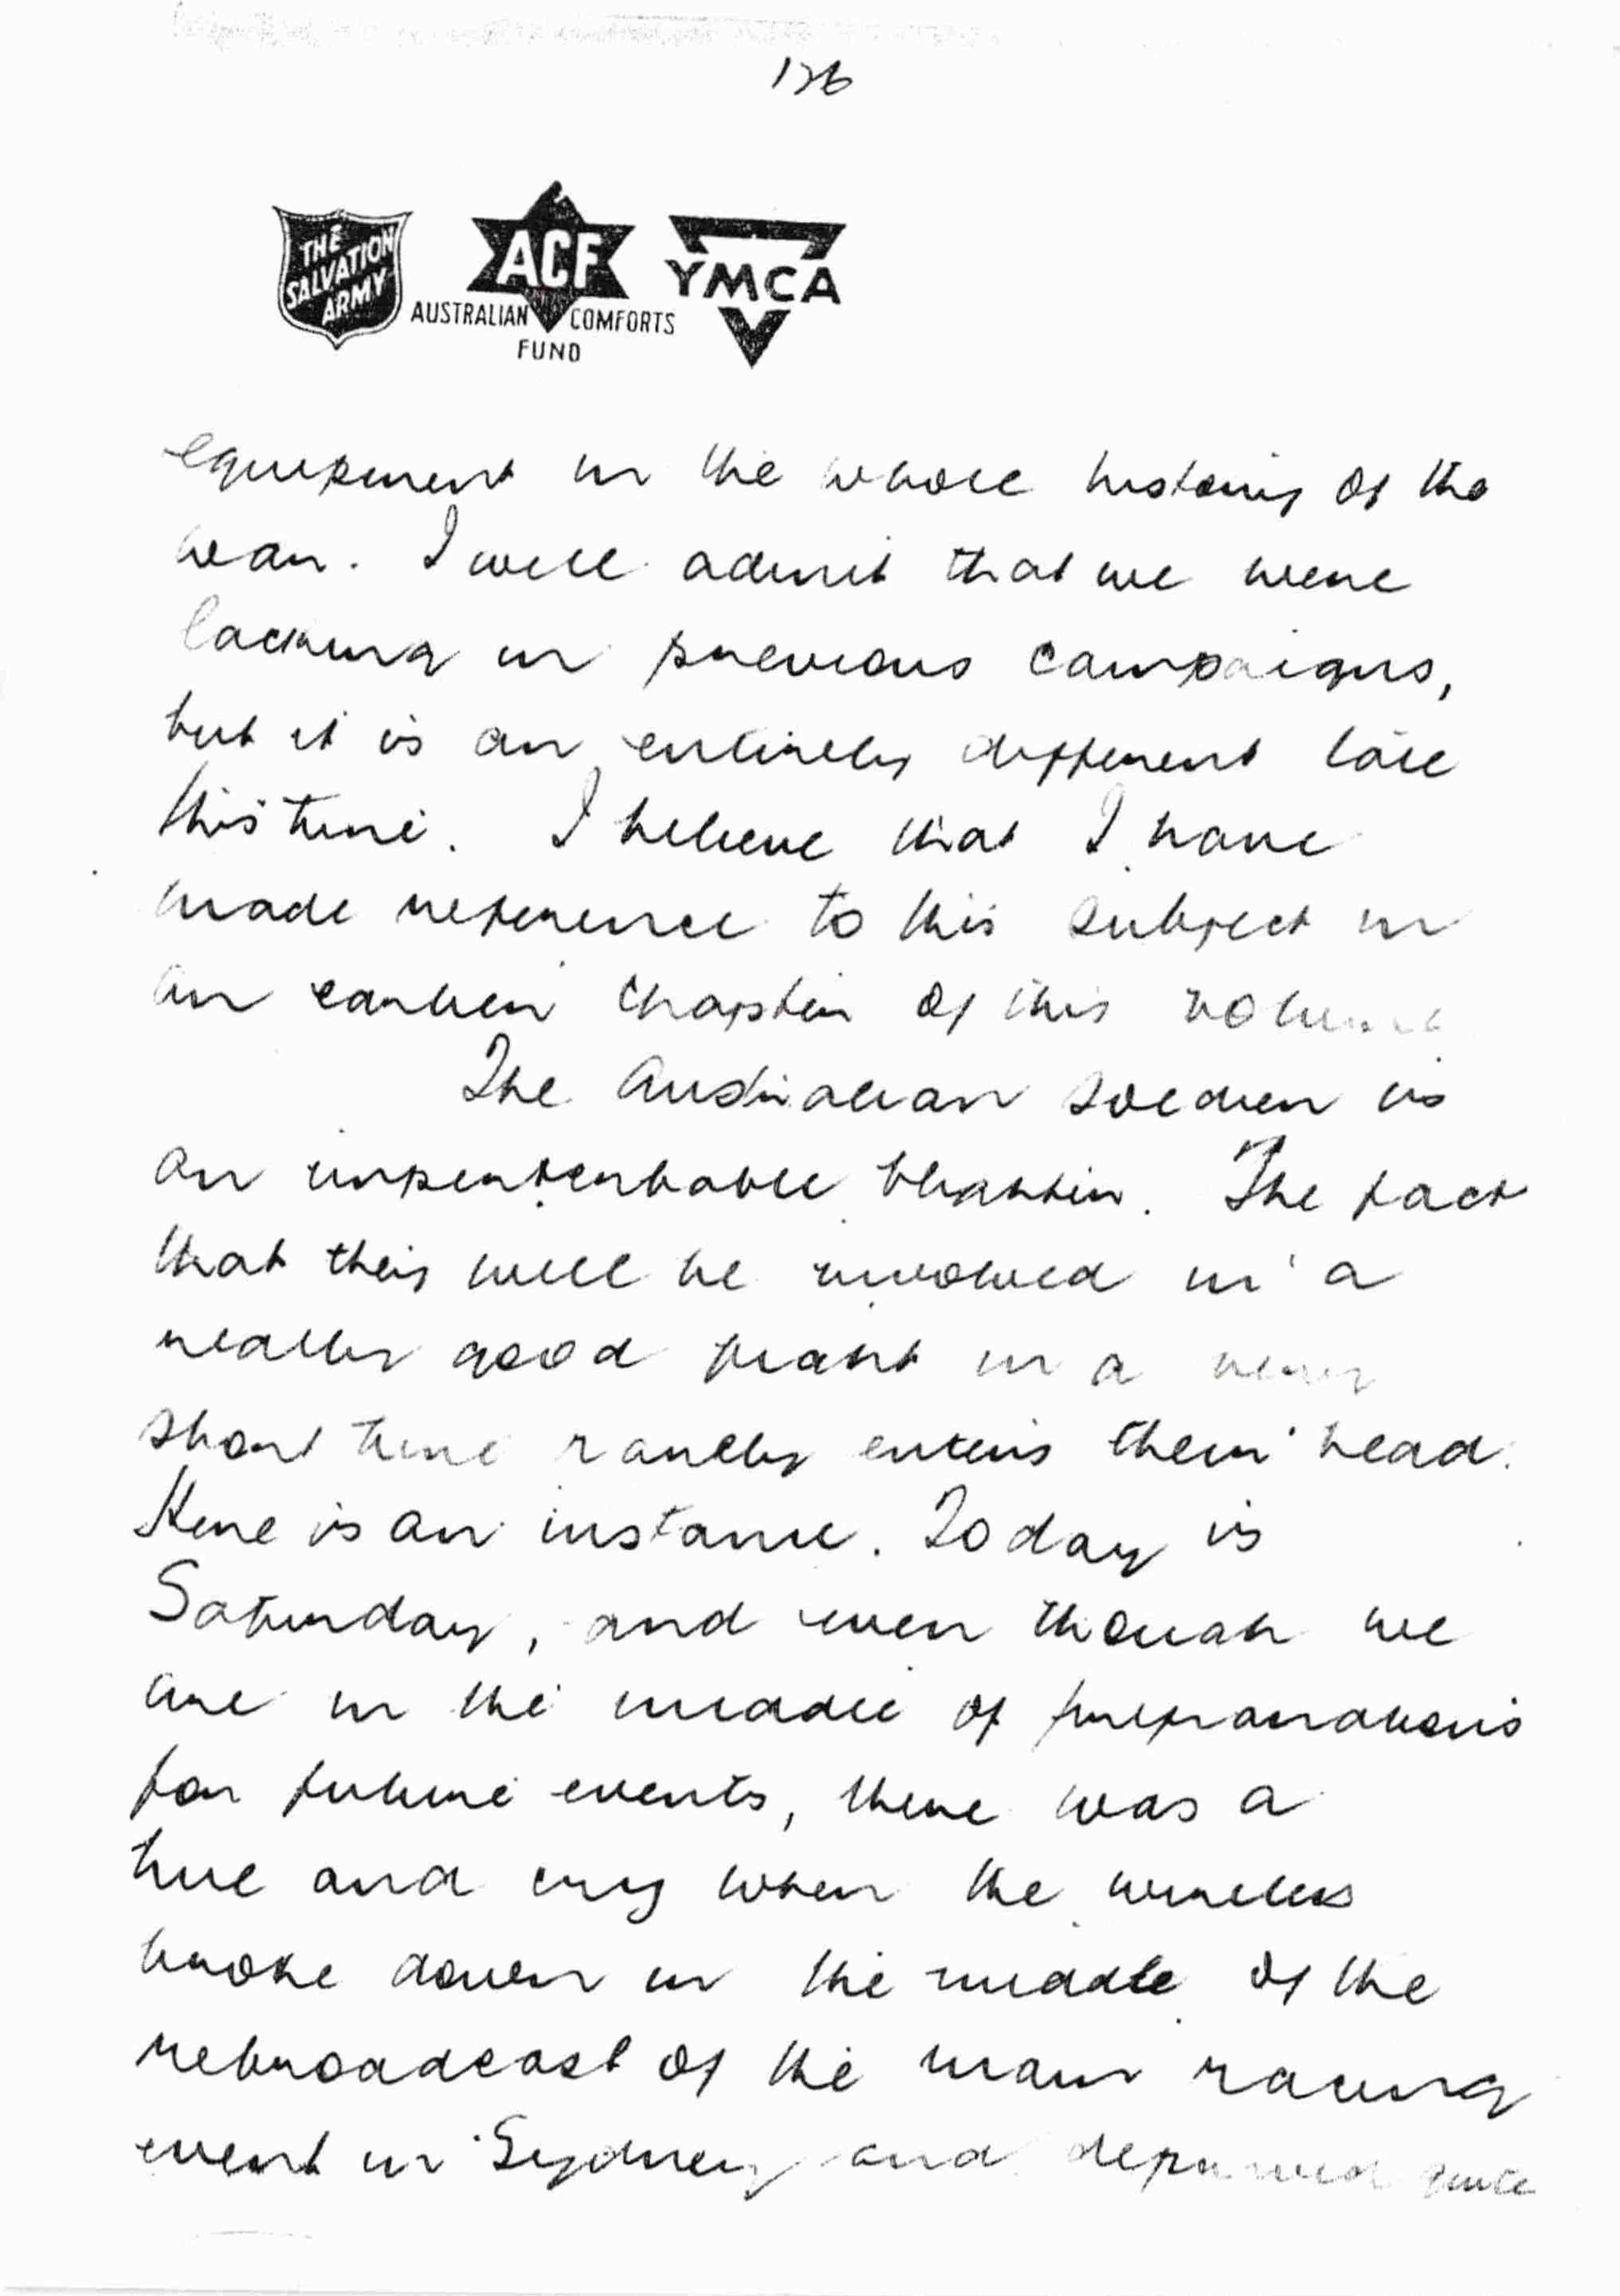 126
THE SALVATION ARMY
ACF
AUSTRALIAN COMFORTS FUND
YMCA
equipment in the whole history of the
war. I will admit that we were
lacking in previous campaigns,
but it is an entirely different tale
this time. I believe that I have
made reference to this subject in
an earlier chapter of this volume
The Australian soldier is
an imperturbable blighter. The fact
that they will be involved in a
really good fight in a very
short time rarely enters their head.
Here is an instance. Today is
Saturday, and even though we
are in the middle of preparations
for future events, there was a
hue and cry when the wireless
broke down in the middle of the
rebroadcast of the main racing
event in Sydney and deprived quite